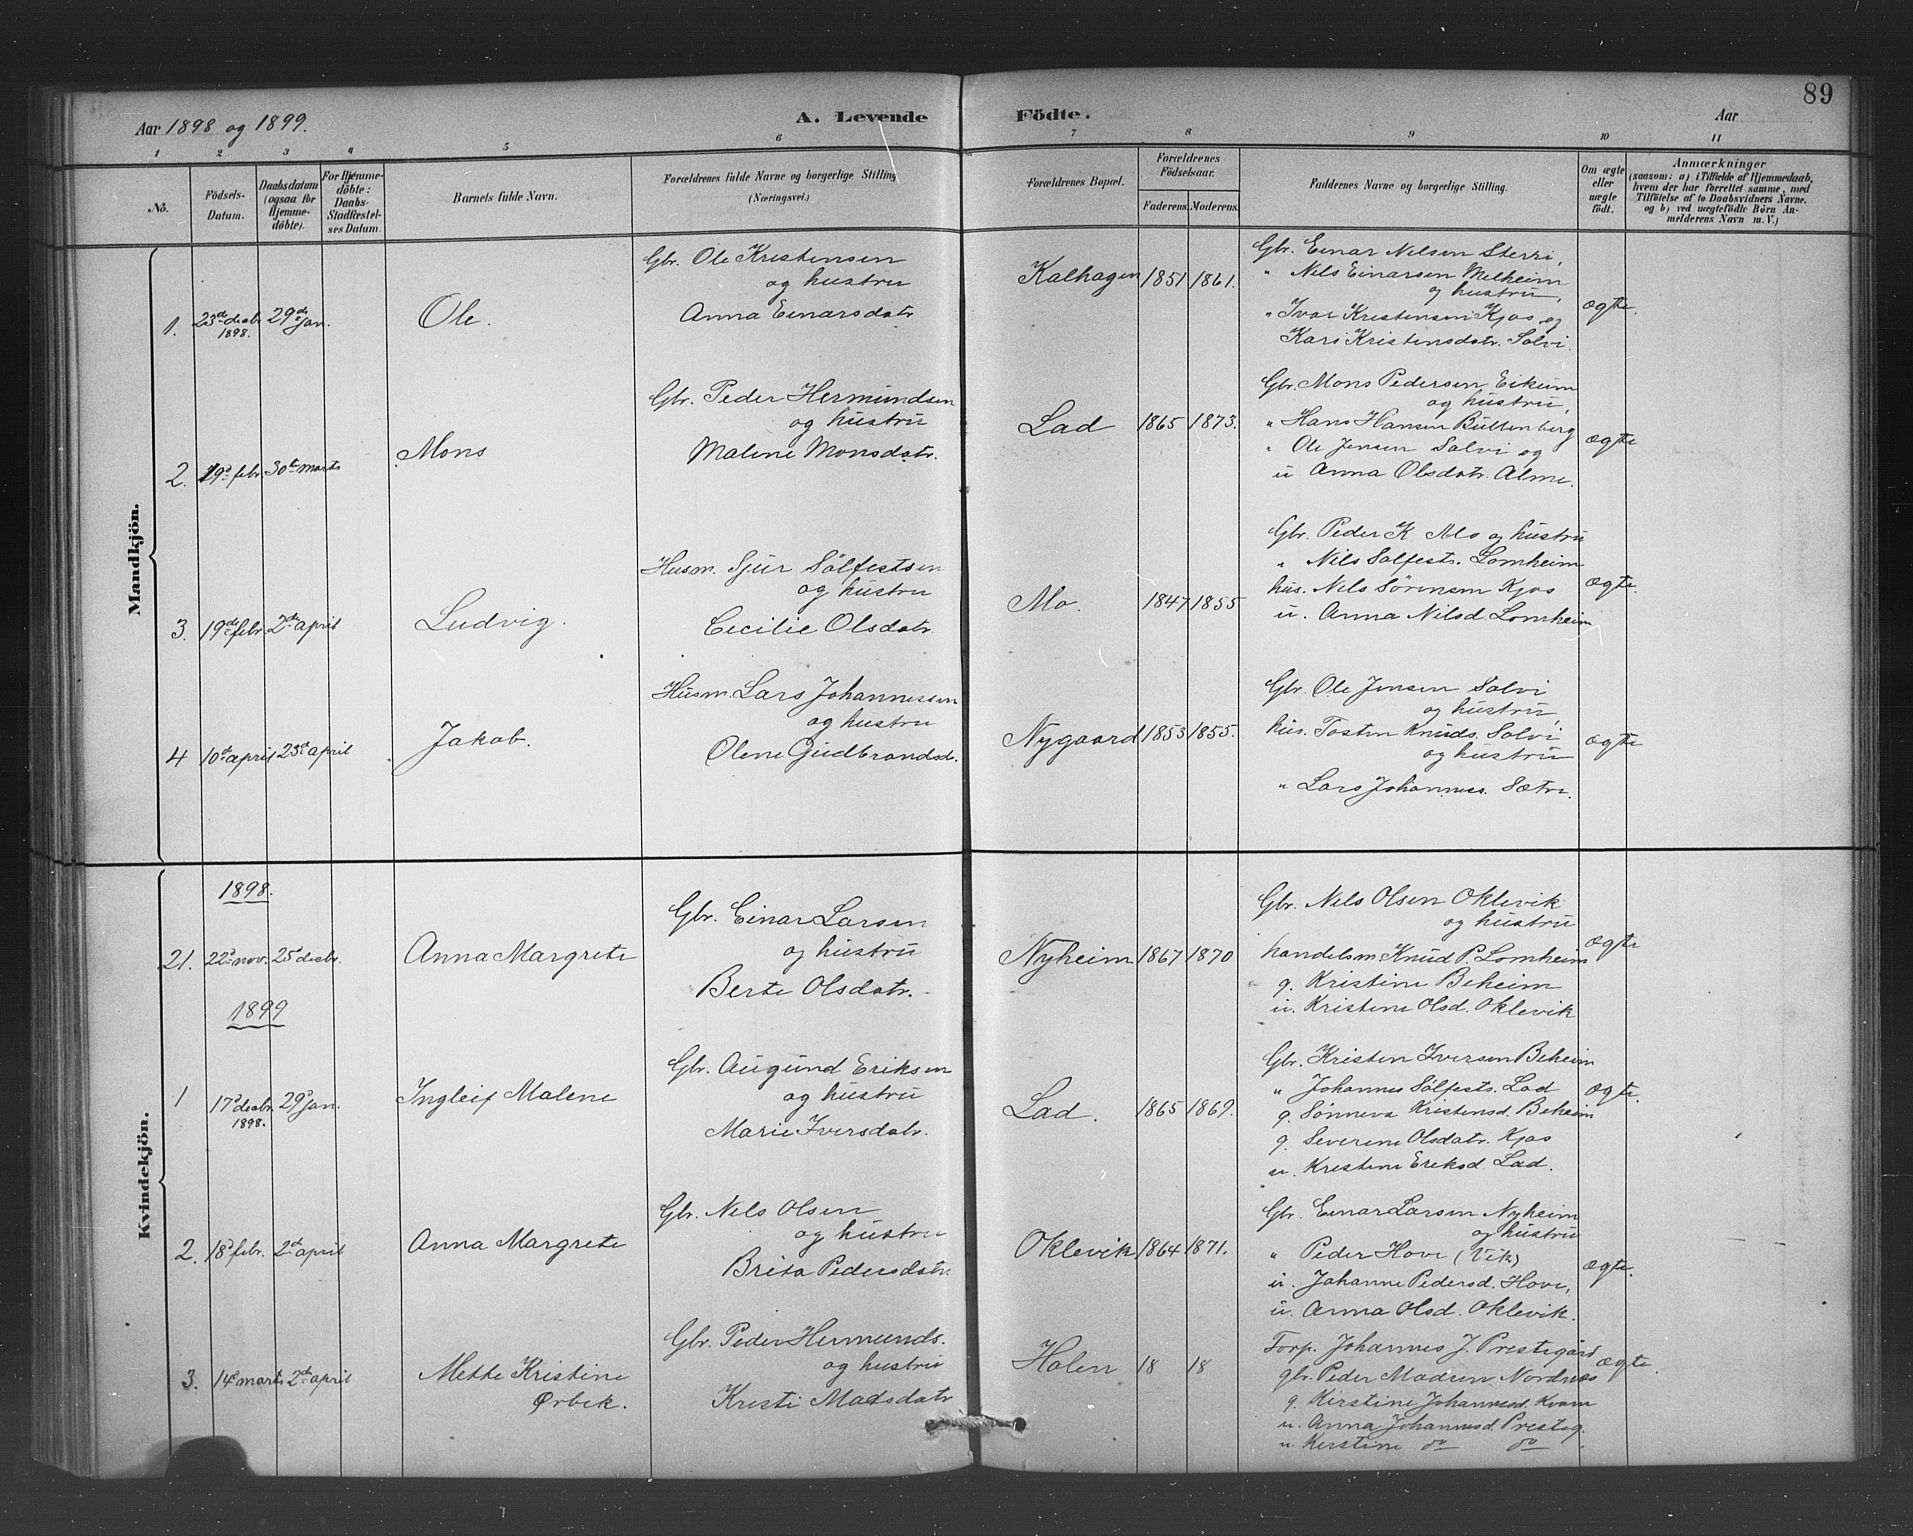 89
Aar 1898 og 1899.
A. Levende Födte.
Aar
1 2 3 4 5 6 7 8 9 10 11
No.
Födsels-
Datum.
Daabsdatum
(ogsaa for
Hjemme-
döbte).
For Hjemme-
döbte:
Daabs-
Stadfæstel-
ses Datum.
Barnets fulde Navn.
Forældrenes fulde Navne og borgerlige Stilling
(Næringsvei.)
Forældrenes Bopæl.
Forældrenes
Födselsaar.
Faderens. Moderens.
Faddernes Navne og borgerlige Stilling.
Om ægte
eller
uægte
födt.
Anmærkninger
(saasom: a) i Tilfælde af Hjemmedaab,
hvem der har forrettet samme, med
Tilföielse af to Daabsvidners Navne.
og b) ved uægtefödte Börn An-
melderens Navn m. V.)
Mandkjön.
1. 23de decbr. 1898. 29de jan. Ole.
Gbr. Ole Kristensen
og hustru
Anna Einarsdatr.
Kalhagen 1851 1861.
Gbr. Einar Nilsen Sterri,
" Nils Einarsen Melheim
og hustru,
" Ivar Kristensen Kjos og
Kari Kristensdatr. Solvi.
ægte.
2. 19d febr. 30te marts Mons
Gbr. Peder Hermundsen
og hustru
Malene Monsdatr.
Lad 1865 1873.
Gbr. Mons Pedersen Eikum
og hustru,
" Hans Hansen Bultenberg
" Ole Jensen Solvi og
u Anna Olsdatr. Alme.
ægte
3. 19de febr. 2de april Ludvig.
Husm. Sjur Sölfestsen
og hustru
Cecilie Olsdatr.
Mo. 1847 1855
Gbr. Peder K Mo og hustru
" Nils Solfests. Lomheim
hus. Nils Sörensen Kjos
u. Anna Nilsd. Lomheim
ægte.
4 10d april 23d april Jakob.
Husm. Lars Johannessen
og hustru
Olene Gudbrandsd.
Nygaard 1853 1855.
Gbr. Ole Jensen Solvi
og hustru,
hus. Tosten Knuds. Solvi
og hustru
" Lars Johannes. Sætre.
ægte
Kvindekjön.
1898.
21. 22d nov. 25d decbr. Anna Margrete
Gbr. Einar Larsen
og hustru
Berte Olsdatr.
Nyheim 1867 1870
Gbr. Nils Olsen Oklevik
og hustru
handelsm. Knud P. Lomheim
g. Kristine Beheim
u. Kristine Olsd. Oklevik
ægte
1899
1 17d decbr. 1898. 29d jan. Ingleif Malene
Gbr. Augund Eriksen
og hustru
Marie Iversdatr.
Lad. 1865 1869.
Gbr. Kristen Iversen Beheim
" Johannes Sölfests. Lad
g. Sönneva Kristensd. Beheim
g. Severine Olsdatr. Kjos
u. Kristine Eriksd. Lad.
ægte.
2. 18d febr. 2d april Anna Margrete
Gbr. Nils Olsen
og hustru
Brita Pedersdatr.
Oklevik 1864 1871.
Gbr. Einar Larsen Nyheim
og hustru
" Peder Hove (Vik)
u. Johanne Pedersd. Hove,
u. Anna Olsd. Oklevik.
ægte.
3. 14d marts 2de april Mette Kristine
Ørbek.
Gbr. Peder Hermunds.
og hustru
Kristi Madsdatr
Holen 18 18
Forp. Johannes J. Prestegård
gbr. Peder Madsen Nordnes
g. Kirstine Johannesd. Kvam
u. Anna Johannesd. Presteg.
u. Kerstine do do
ægte.